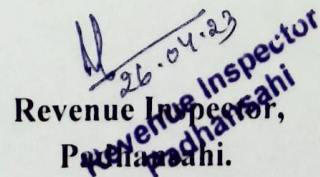 26.04.23
Revenue Inspector
Padhansahi
Revenue Inspector,
Padhansahi.